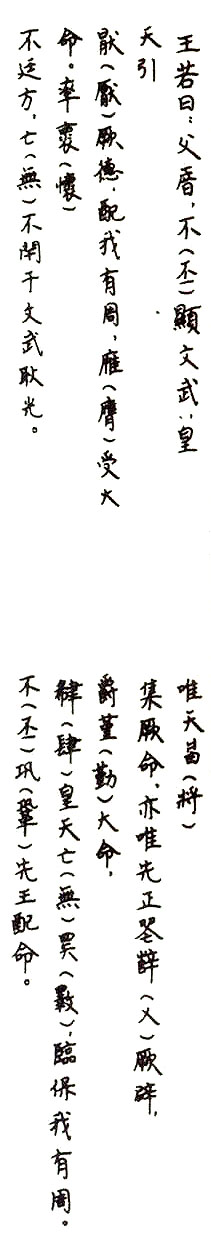 王若曰：父㕥，不（丕）顯文武，皇
天引
猒（厭）厥德，配我有周，雁（膺）受大
命。率褱（懷）
不廷方，亡（無）不閈于文武耿光。
唯天𤖕（將）
集厥命，亦唯先正𦥑辥（乂）厥辟，
爵堇（勤）大命，
肄（肆）皇天亡（無）斁（斁），臨保我有周。
不（丕）巩（鞏）先王配命。